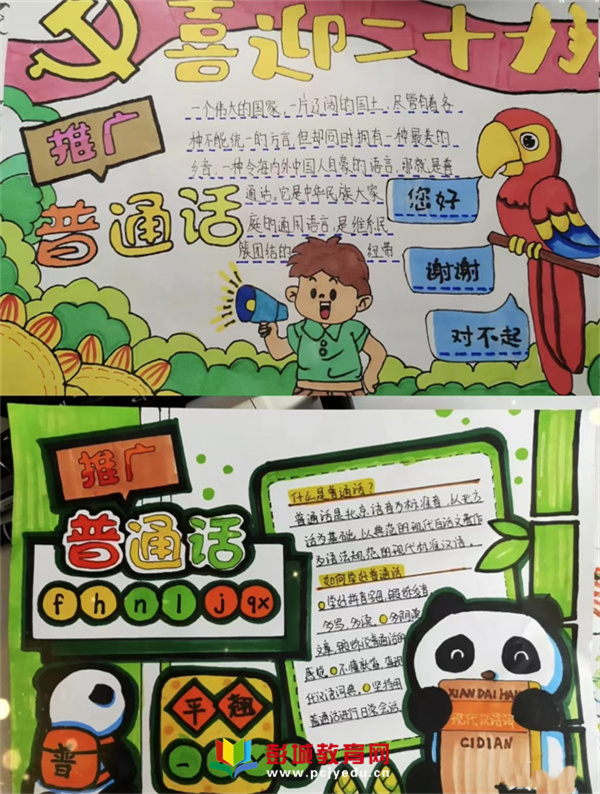 喜迎二十大
推广
普通话
一个伟大的国家,一片辽阔的国土,尽管有着各
种不能统一的方言,但却同时拥有一种最美的
乡音,一种令海内外中国人自豪的语言,那就是普
通话。它是中华民族大家
庭的通用语言,是维系民
族团结的 纽带
您好
谢谢
对不起
推广
普通话
f h n l j qx
什么是普通话?
普通话是北京语音为标准音,以北方
话为基础,以典范的现代白话文著作
为语法规范的现代标准汉语。
如何学好普通话
学好拼音字母,锻炼发音
多写,多读。多朗读
文章,锻炼说普通话的
感觉。不懂就查,查现
代汉语词典。坚持用
普通话进行日常会话
平 翘
普
XIAN DAI HAN
现代汉语词
CIDIAN
彭城教育网
www.pcjyedu.cn